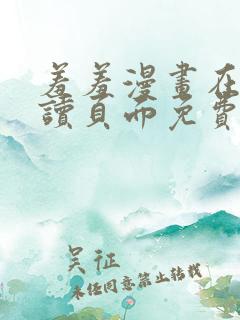 羞羞漫畫在
讀頁面免費
吴征
未经同意禁止转载